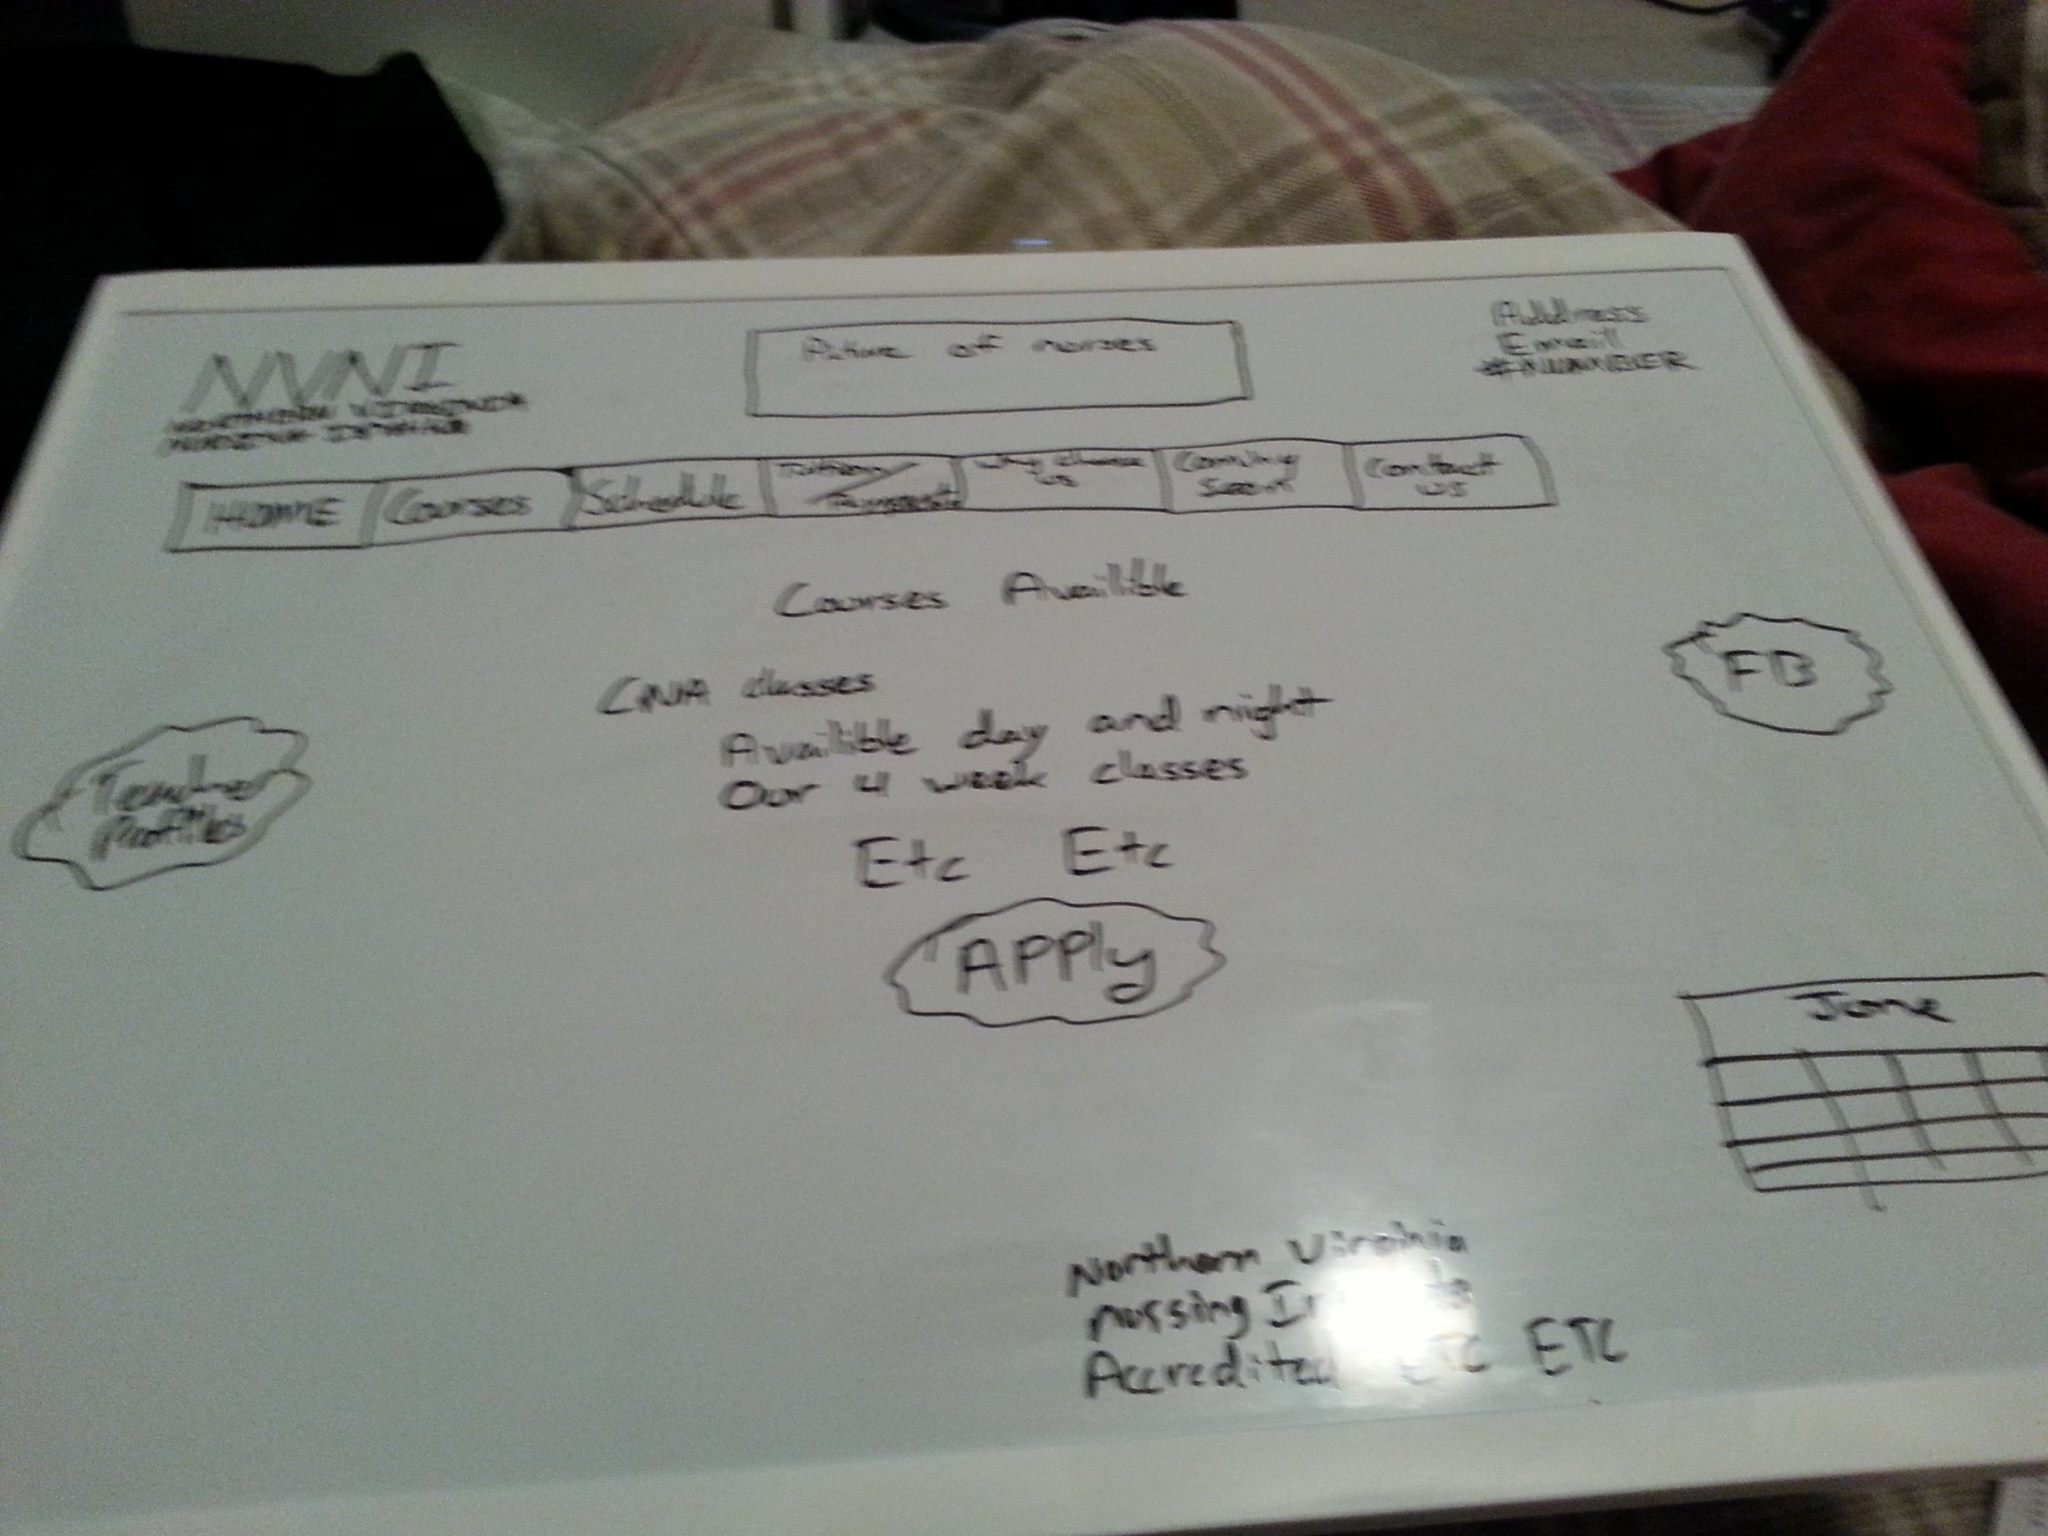 NVNI
NORTHERN VIRGINIA
NURSING
Picture of nurses
Address
Email
#NUMBER
HOME
Courses
Schedule
Tuition/
Why choose
us
Coming
Soon
Contact
us
Courses Availible
CNA classes
Availible day and night
Our 4 week classes
Etc Etc
APPly
FB
Teacher
Profiles
June
Northern Virginia
nursing
Accredited ETC ETC